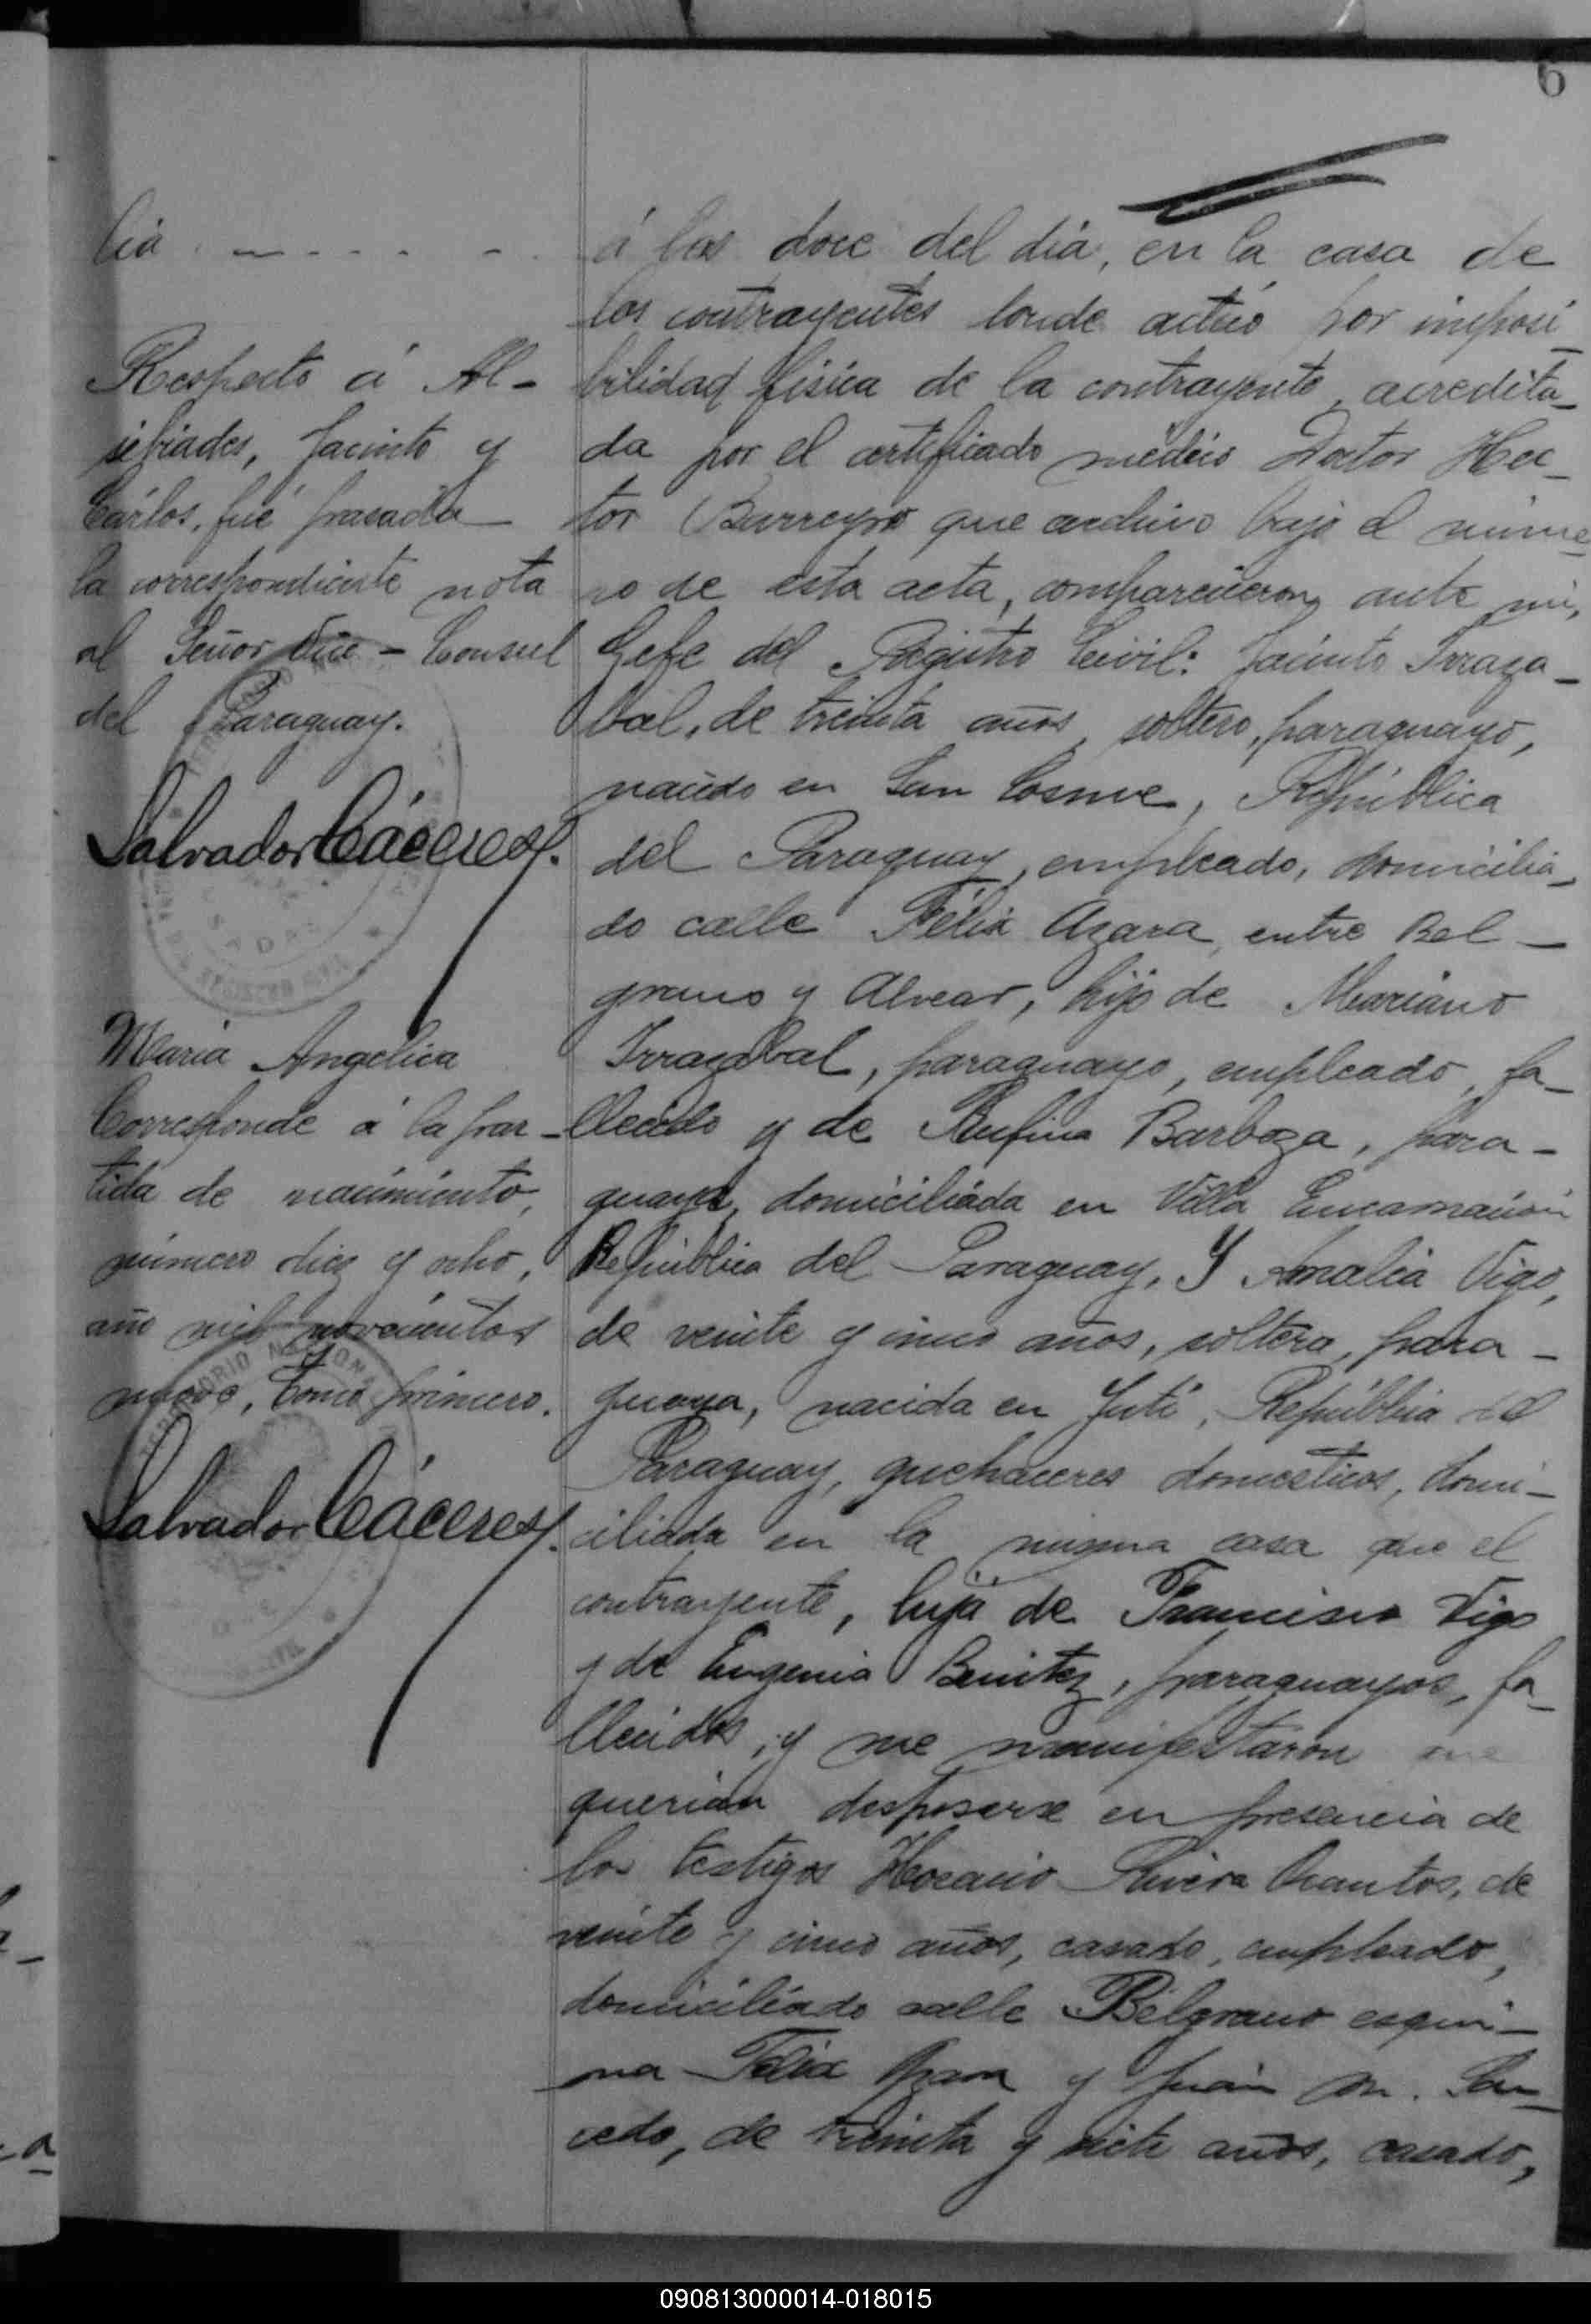 6
lia
Respecto á Al-
sibiades, Jacinto y
Cárlos, fué pasada
la correspondiente nota
al Señor Vice-Consul
del Paraguay.
Salvador Cáceres.
Maria Angelica
Corresponde á la par-
tida de nacimiento,
número diez y ocho,
año mil novecientos
nueve, tomo primero.
Salvador Cáceres.
á las doce del dia, en la casa de
los contrayentes donde actúo por imposi-
bilidad fisica de la contrayente, acredita-
da por el certificado medico Doctor Hec-
tor Barreyro que archivo bajo el núme-
ro de esta acta, comparecieron ante mi,
Gefe del Registro Civil: Jacinto Irraza-
bal, de treinta años, soltero, paraguayo,
nacido en San Cosme, República
del Paraguay, empleado, domicilia-
do calle Félix Azara, entre Bel-
grano y Alvear, hijo de Mariano
Irrazabal, paraguayo, empleado, fa-
llecido y de Rufina Barboza, para-
guaya, domiciliada en Villa Encarnación
República del Paraguay. Y Amalia Vigo,
de veinte y cinco años, soltera, para-
guaya, nacida en Yuti, República del
Paraguay, quehaceres domesticos, domi-
ciliada en la misma casa que el
contrayente, hija de Francisco Vigo
y de Eugenia Benitez, paraguayos, fa-
llecidos, y me manifestaron que
querian desposarse en presencia de
los testigos Horacio Rivera Orantos, de
veinte y cinco años, casado, empleado,
domiciliado calle Belgrano esqui-
na Félix Azara y Juan M. Sau-
cedo, de treinta y siete años, casado,
090813000014-018015